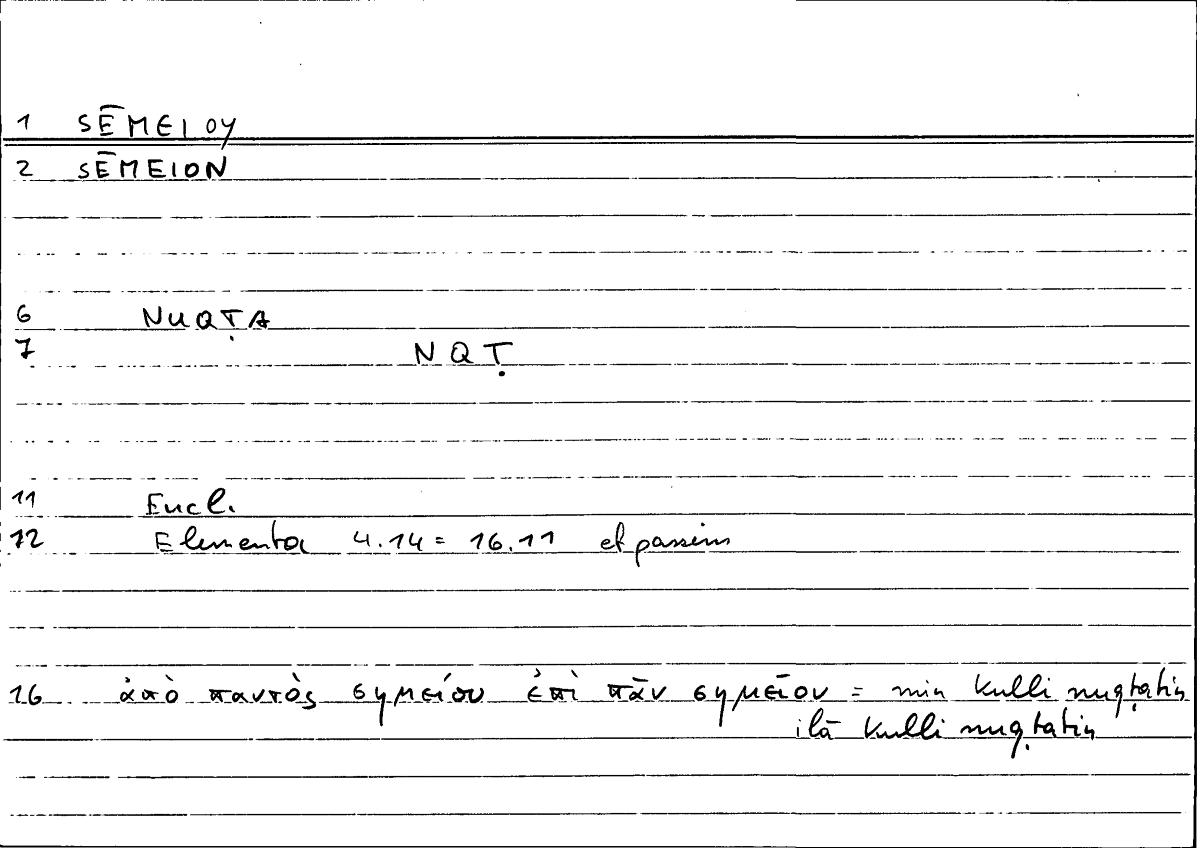 1 SĒMEIOY
2 SĒMEION
6 NUQṬA
7 NQṬ
11 Eucl.
12 Elementa 4.14 = 16.11 et passim
16 ἀπὸ παντὸς σημείου ἐπὶ πᾶν σημεῖον = min kulli nuqṭatin
ilā kulli nuqṭatin